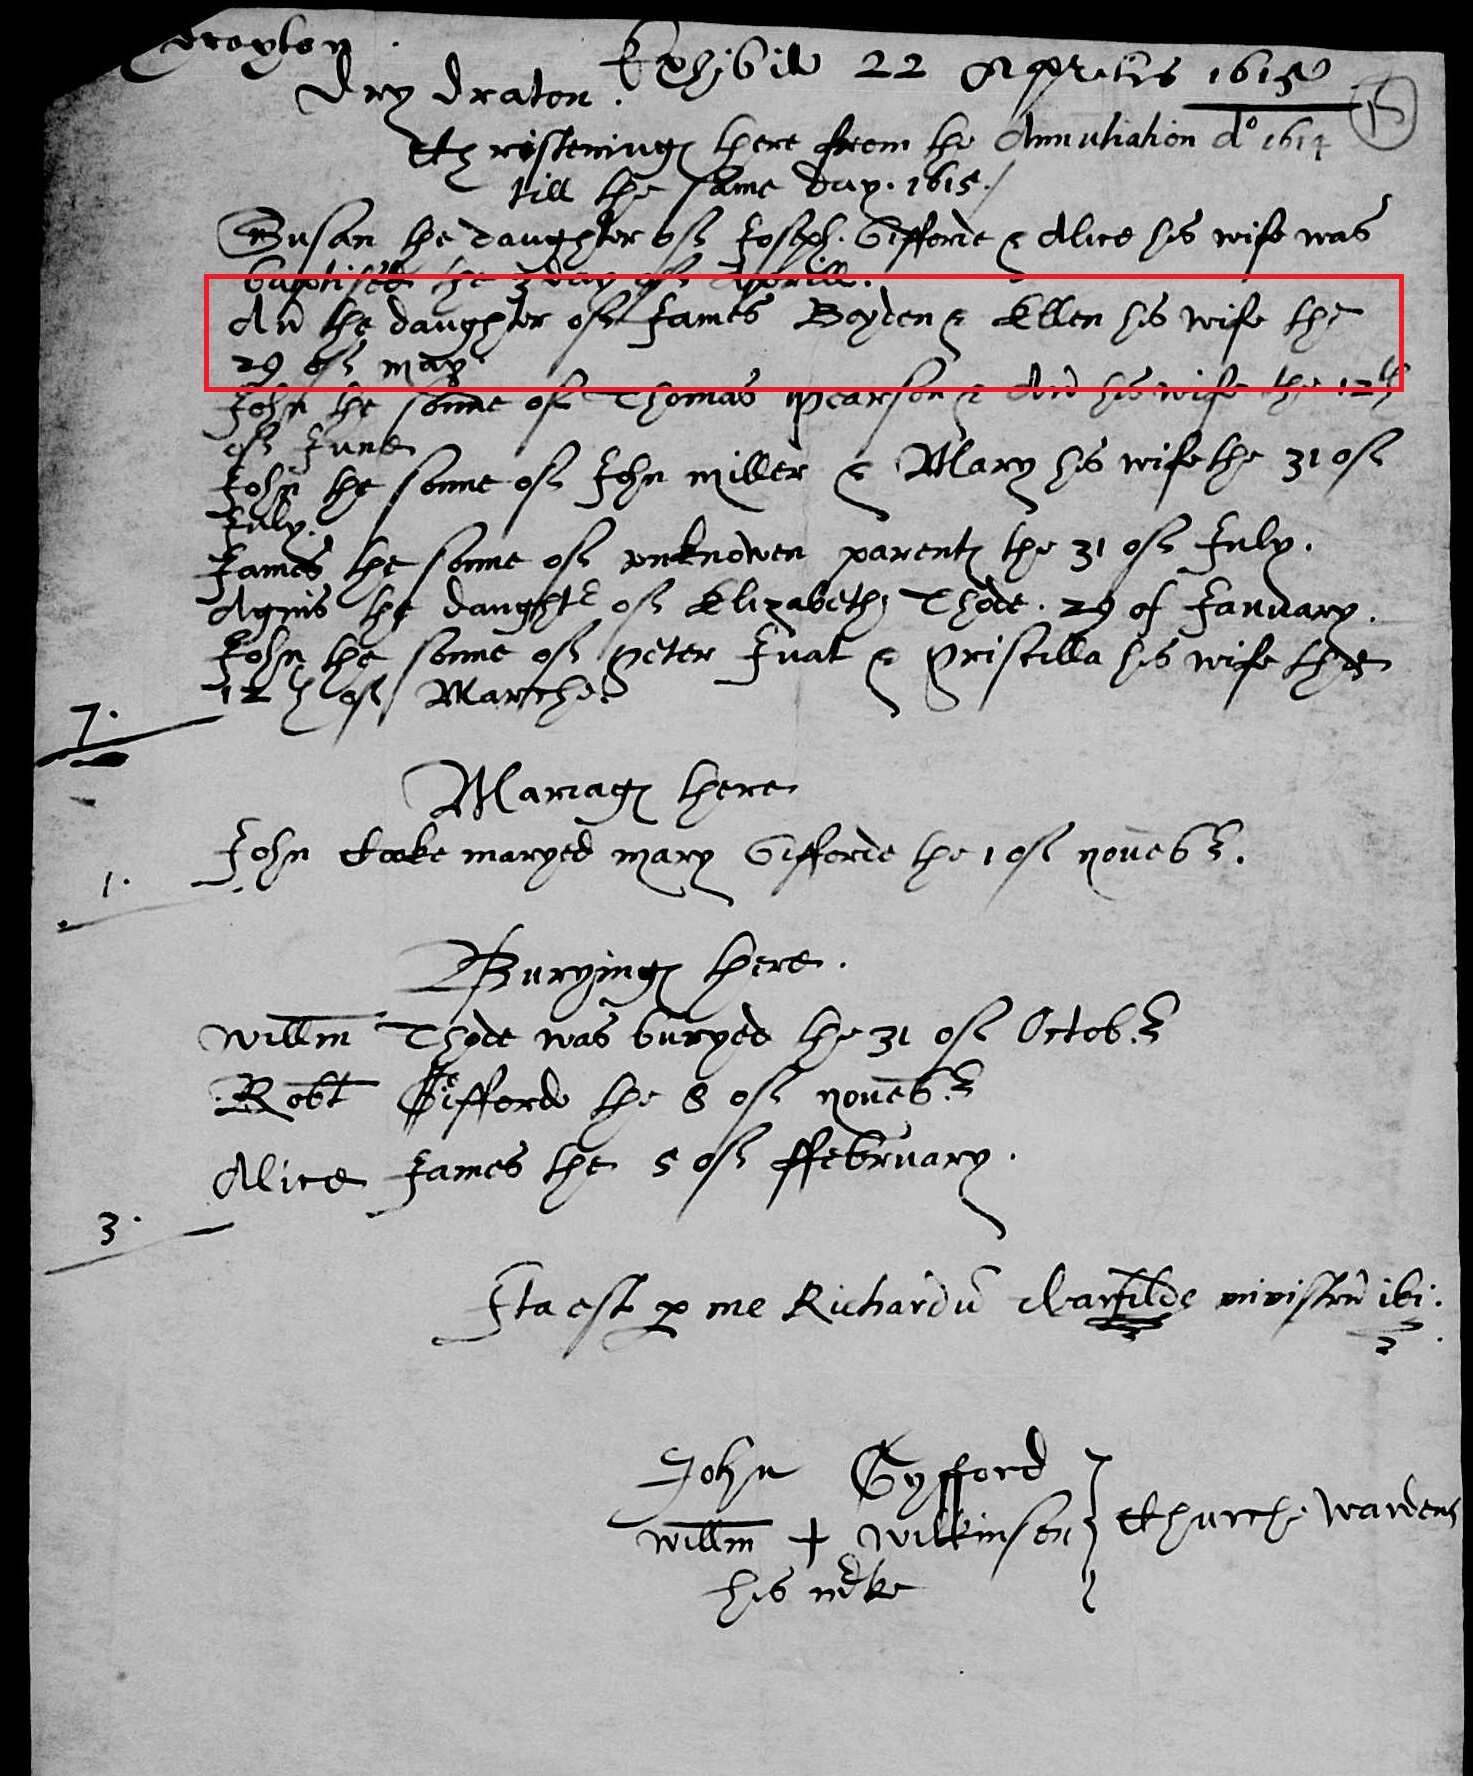 Drayton.
Dry Draton. Exhibit 22 Aprilis 1615
15
Christenings there from the Annutiation Ao 1614
till the same day. 1615.
Susan the daughter of Joseph Gifforde & Alice his wife was
baptised the 3 day of Aprill.
An the daughter of James Boyden & Ellen his wife the
29 of may
John the sonne of Thomas Pearson & An his wife the 12th
of June
John the sonne of John miller & Mary his wife the 31 of
July.
James the sonne of unknowen parents the 31 of July.
Agnis the daughter of Elizabeth Thode. 29 of January.
John the sonne of Peter Juat & Priscilla his wife the
12th of Marche
7.
Mariages there
John Cooke maryed mary Gifforde the 1 of novebr.
1.
Buryings there.
Willm Thode was buryed the 31 of Octobr
Robt Gifforde the 8 of novebr
Alice James the 5 of ffebruary.
3.
Ita est per me Richardu ministru ibi.
John Gyfford
Willm + Wilkinson } Churche wardens
his mke